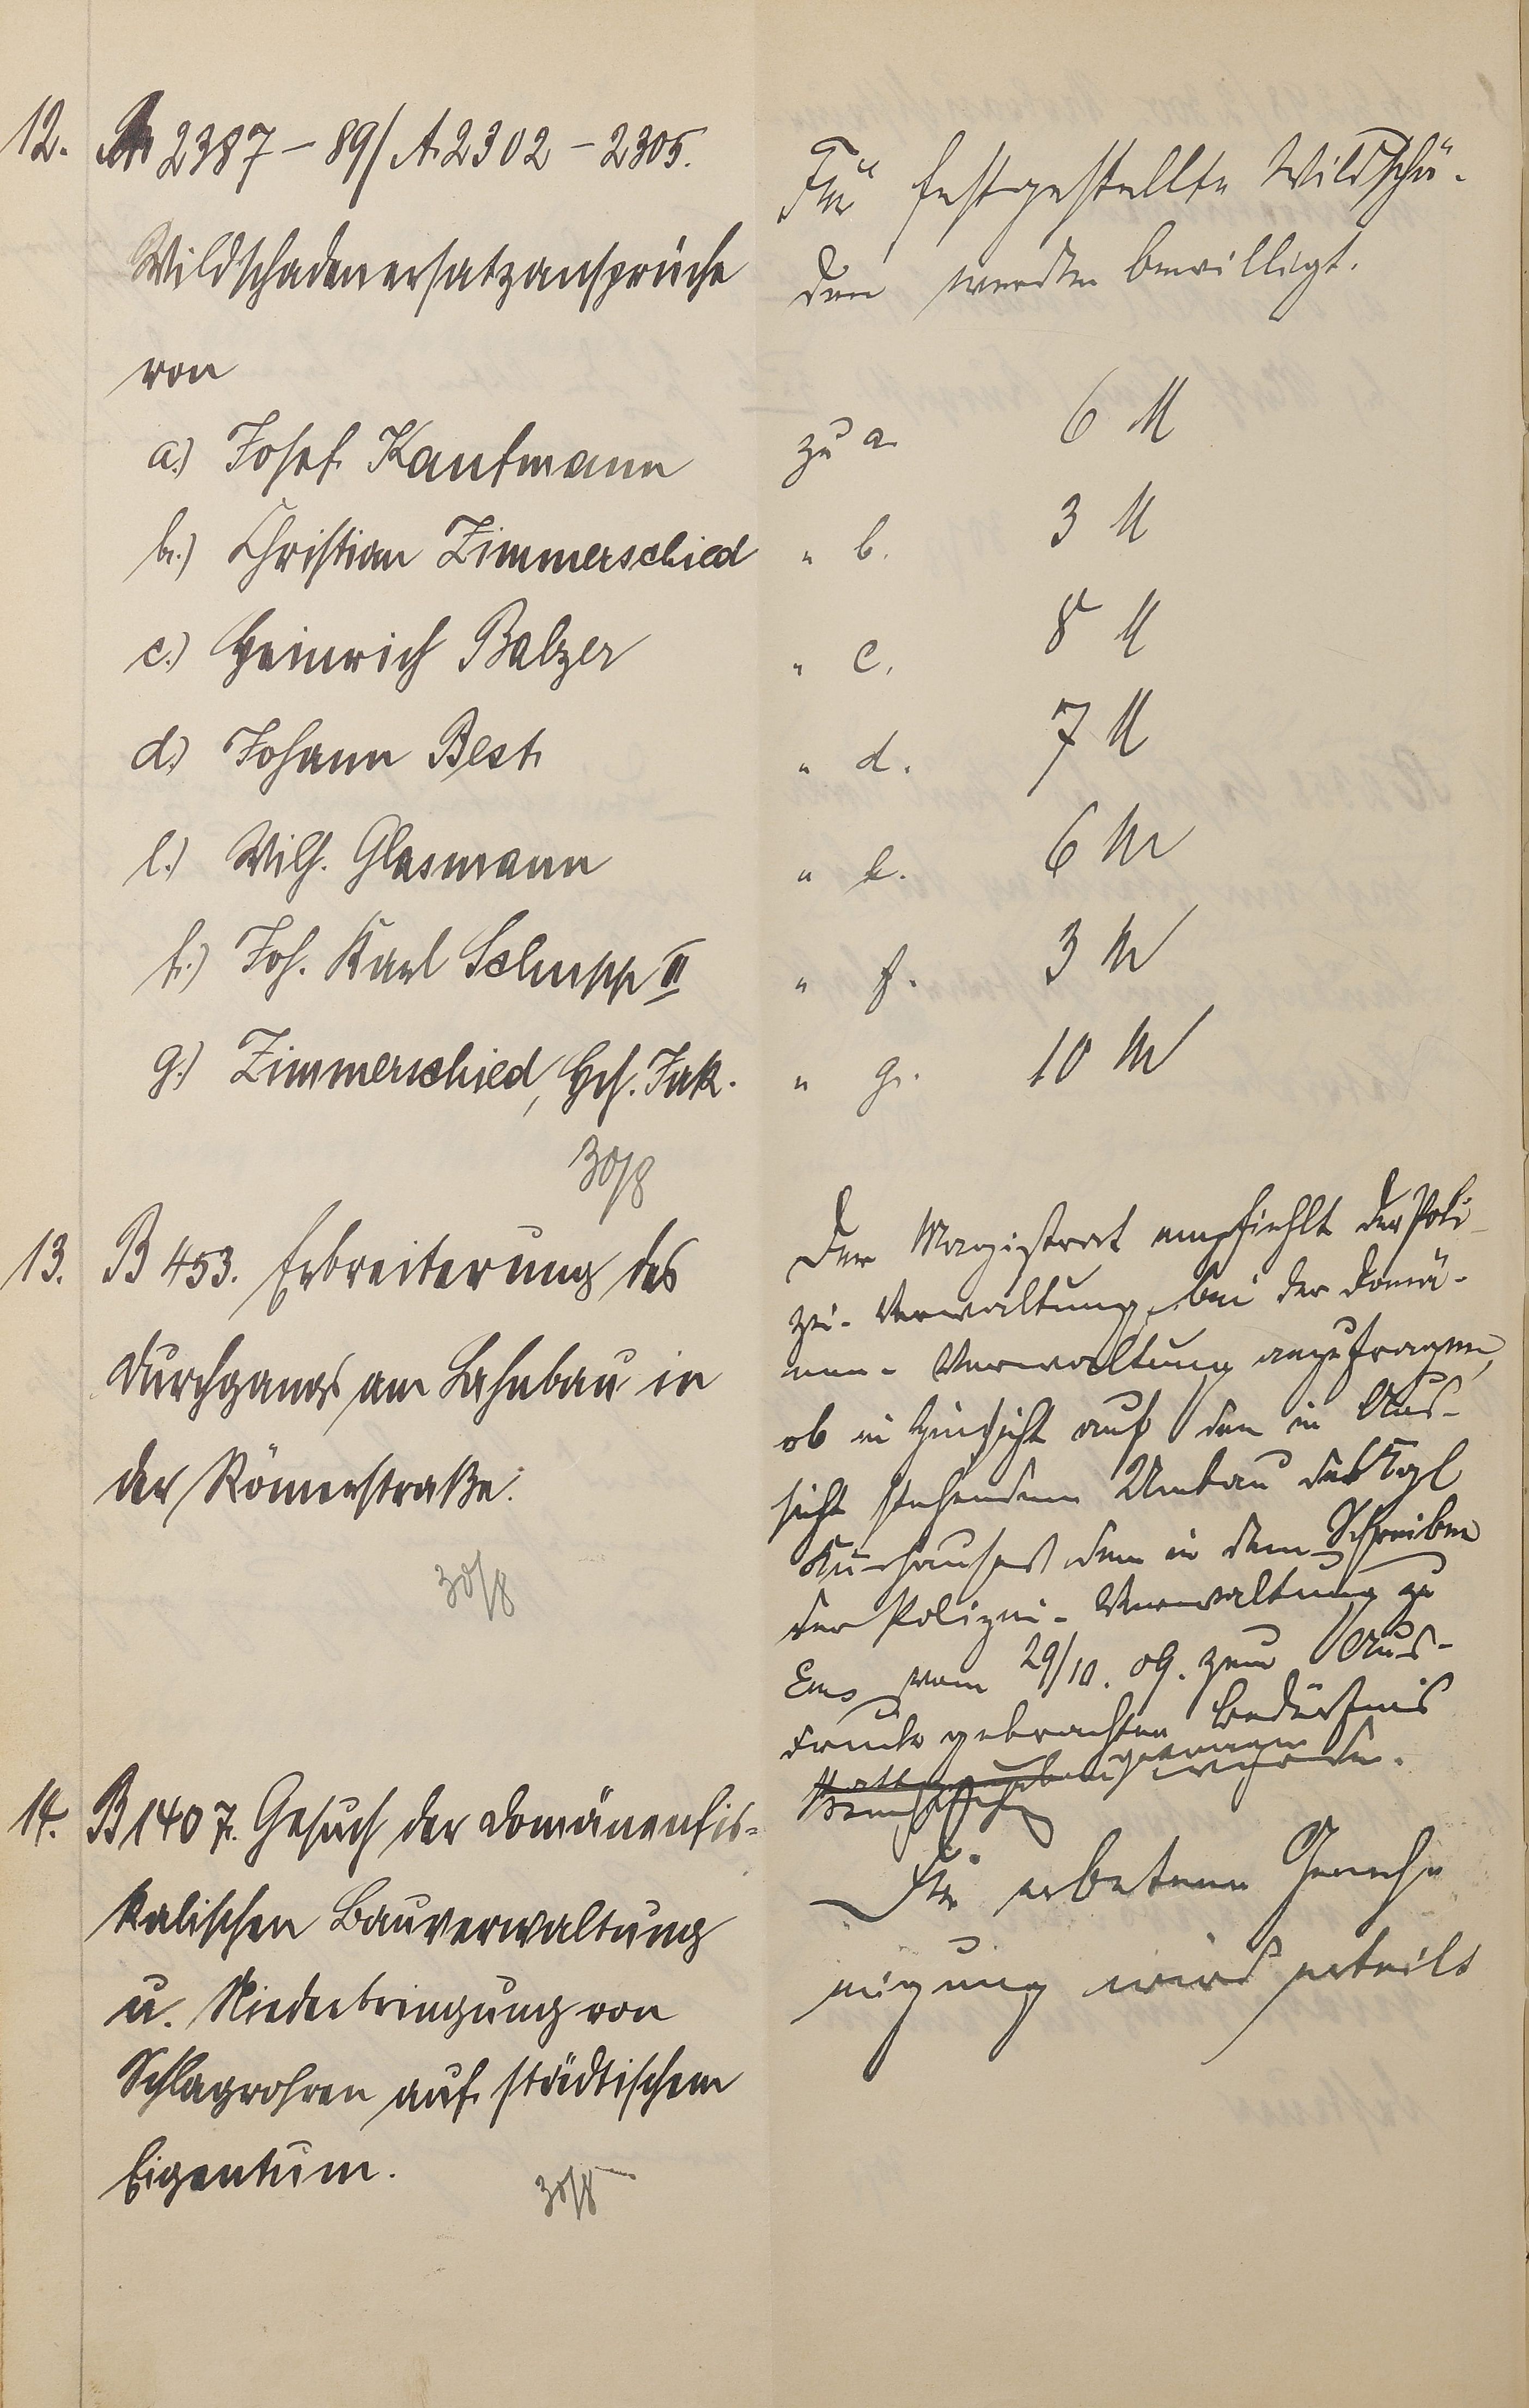 12. A 2387-89/A. 2302-2305.
Wildschadenersatzansprüche
von
a.) Josef Kaufmann
b.) Christian Zimmerschied
c.) Heinrich Balzer
d.) Johann Best
e.) Wilh. Glasmann
f.) Joh. Karl Schupp II
g.) Zimmerschied, Hch. Jak.
30/8
Für festgestellte Wildschä-
den werden bewilligt.
zu a. 6 M
" b. 3 M
" c. 8 M
" d. 7 M
" e. 6 M
" f. 3 M
" g. 10 M
13. B 453. Erbreiterung des
Durchgangs am Bahnbau in
der Römerstraße.
30/8
Der Magistrat empfiehlt der Poli-
zei-Verwaltung, bei der Domä-
nen-Verwaltung anzufragen,
ob in Hinsicht auf den in Aus-
sicht stehenden Umbau des Kgl
Kurhauses dem in dem Schreiben
der Polizei-Verwaltung zu
Ems vom 29/10. 09. zum Aus-
druck gebrachten Bedürfnis
getragen werde.
14. B 1407. Gesuch der Domänenfis-
kalischen Bauverwaltung
u. Niederbringung von
Schlagrohren auf städtischem
Eigentum.
30/8
Die erbetene Geneh-
migung wird erteilt